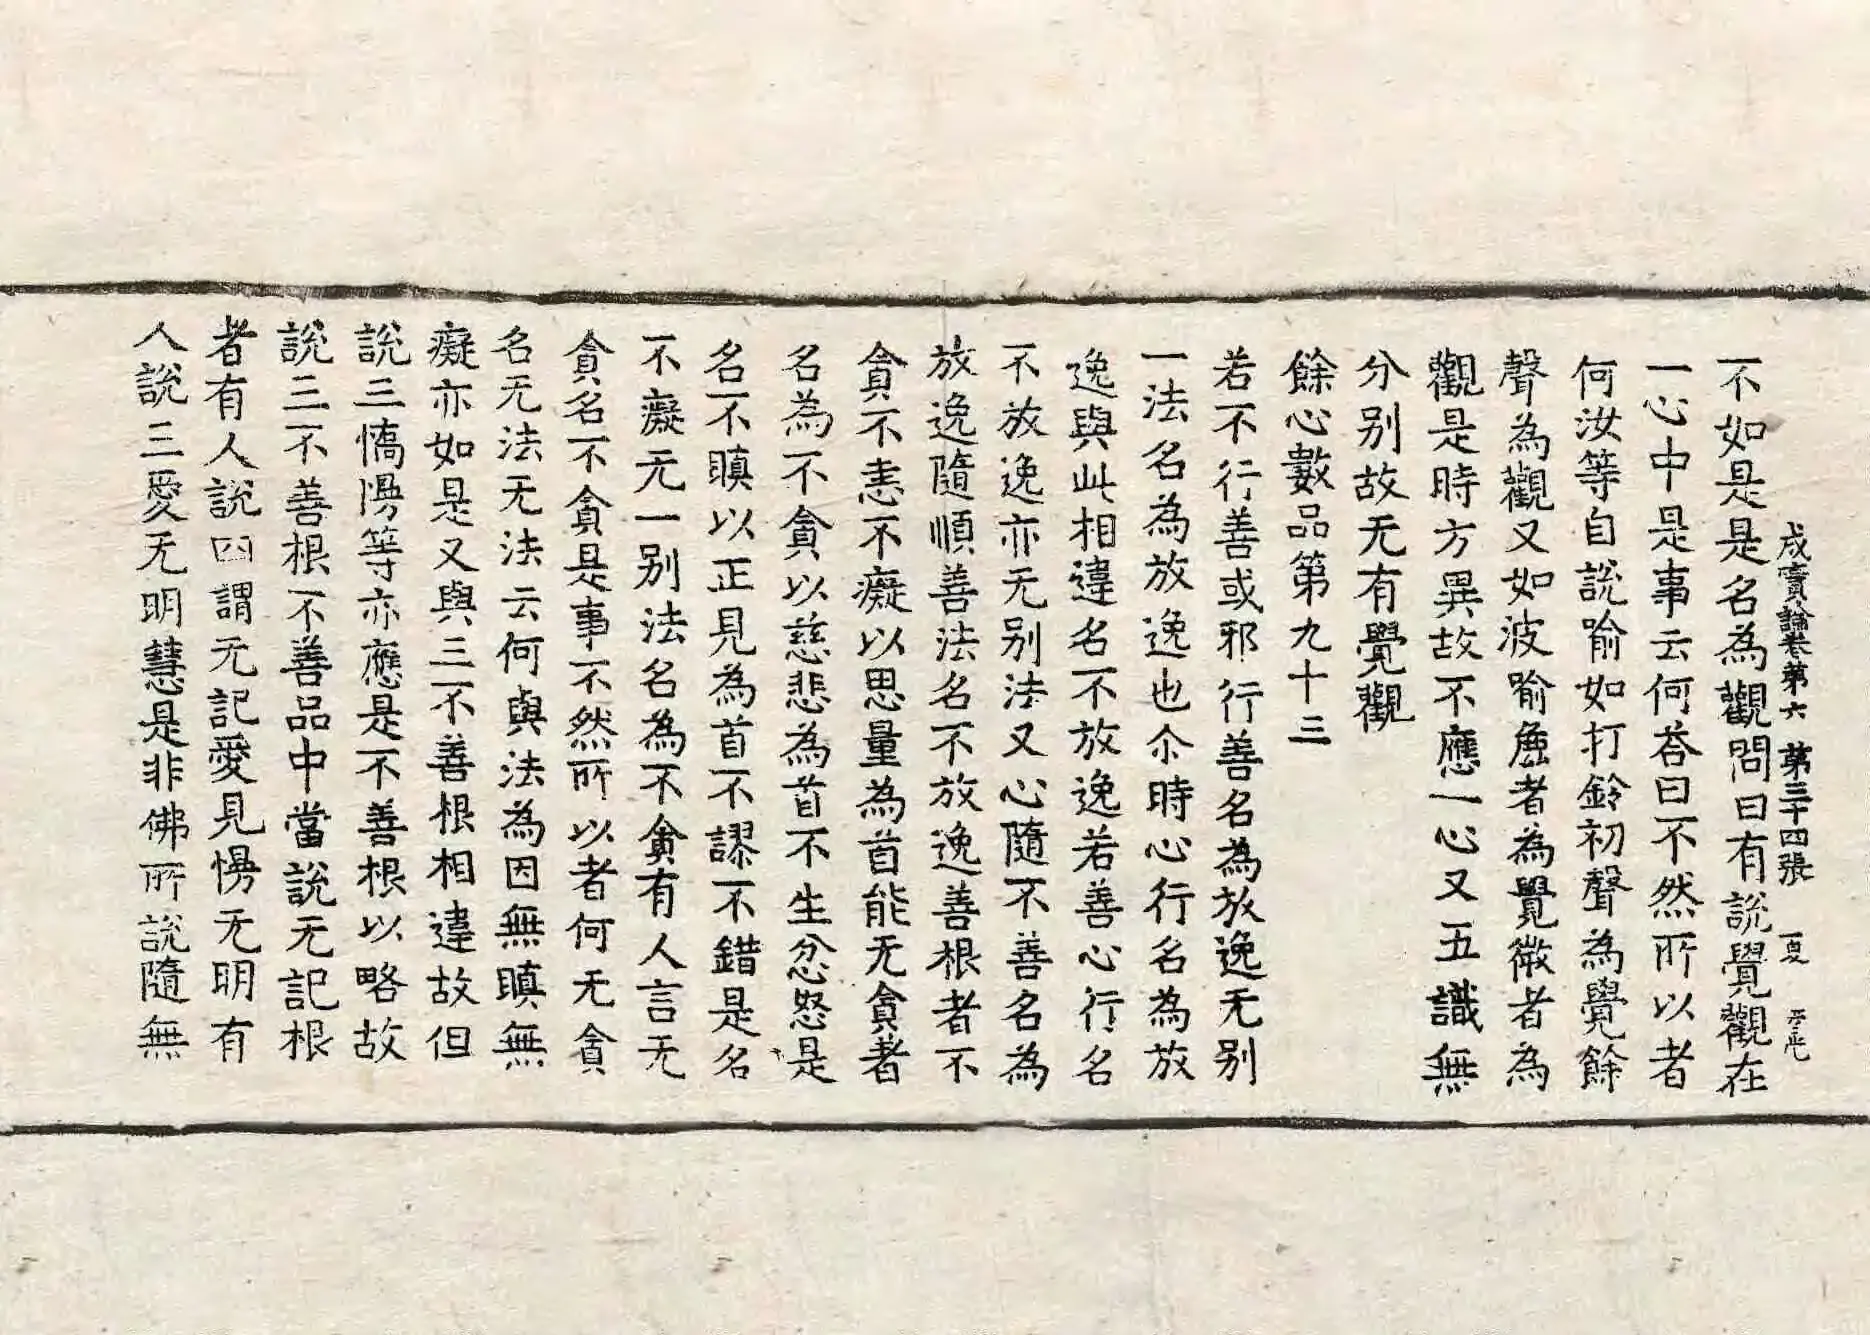 成實論卷第六 第三十四張 夏
不如是是名為觀問曰有說覺觀在
一心中是事云何荅曰不然所以者
何汝等自說喻如打鈴初聲為覺餘
聲為觀又如波喻麁者為覺微者為
觀是時方異故不應一心又五識無
分別故无有覺觀
餘心數品第九十三
若不行善或邪行善名為放逸无別
一法名為放逸也尒時心行名為放
逸與此相違名不放逸若善心行名
不放逸亦无別法又心隨不善名為
放逸隨順善法名不放逸善根者不
貪不恚不癡以思量為首能无貪著
名為不貪以慈悲為首不生忿怒是
名不瞋以正見為首不謬不錯是名
不癡无一別法名為不貪有人言无
貪名不貪是事不然所以者何无貪
名无法无法云何與法為因無瞋無
癡亦如是又與三不善根相違故但
說三憍慢等亦應是不善根以略故
說三不善根不善品中當說无記根
者有人說四謂无記愛見慢无明有
人說三愛无明慧是非佛所說隨無